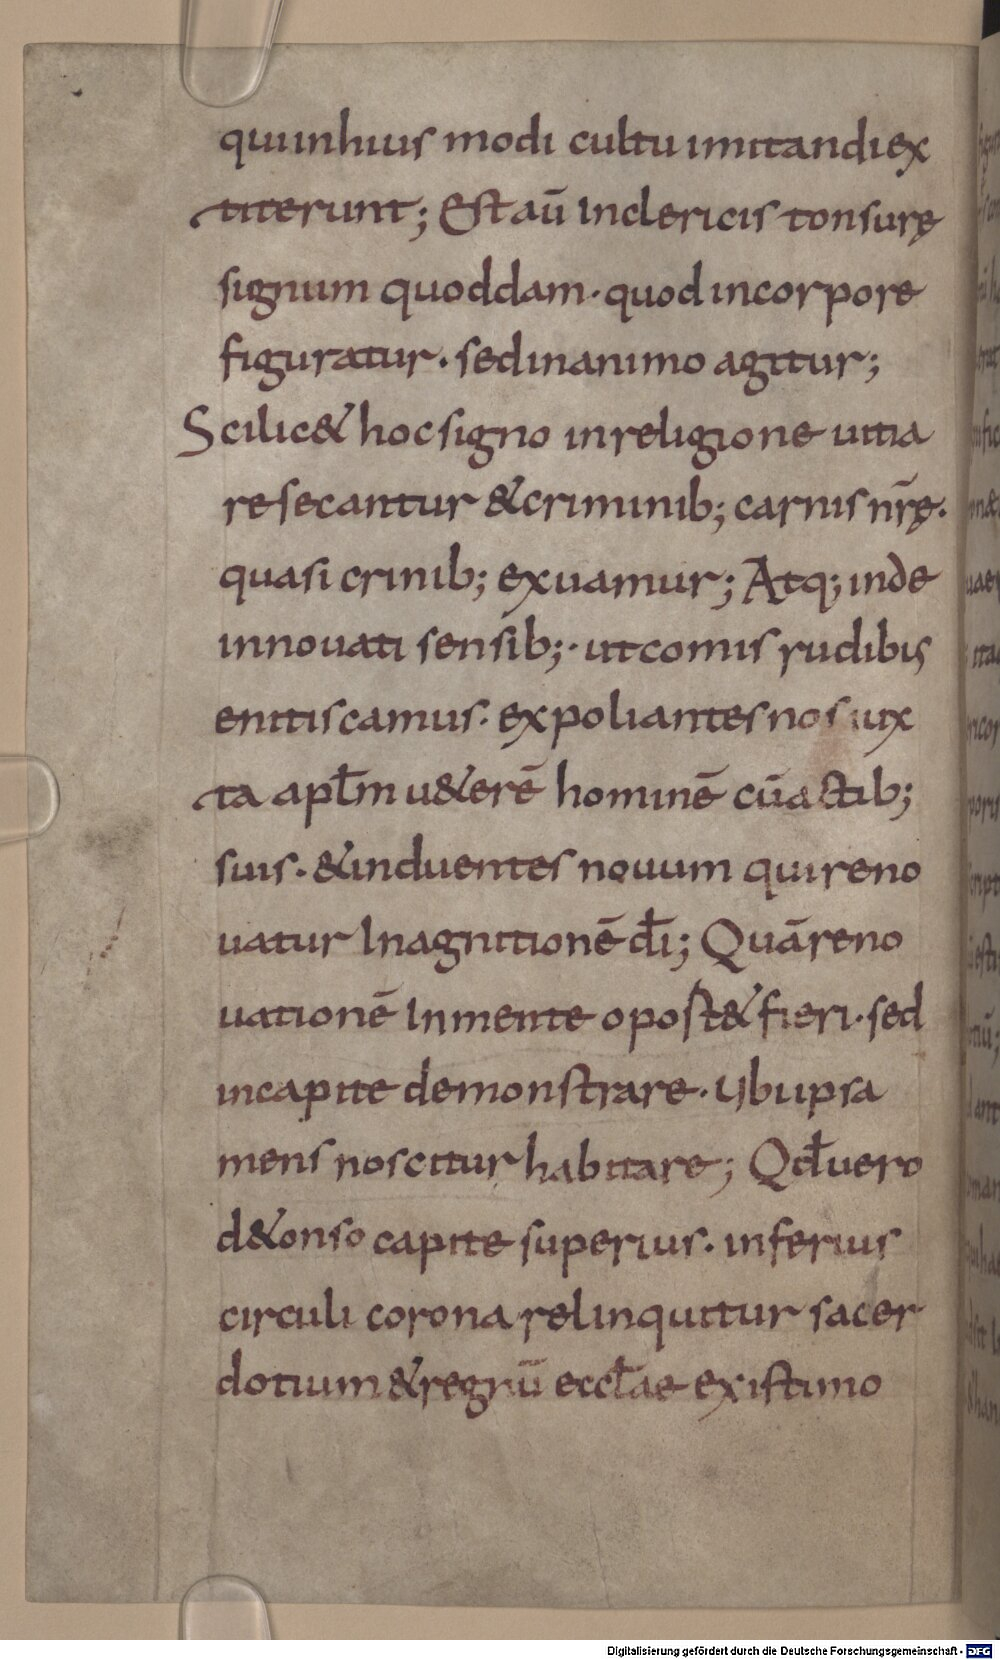 qui inhuius modi cultu imitandi ex
titerunt; Est aū In clericis tonsurę
signum quoddam · quod incorpore
figuratur · sed inanimo agitur;
Scilic& hoc signo inreligione uitia
resecantur & criminib; carnis nr̄ę ·
quasi crinib; exuamur; Atq; inde
innouati sensib; · ut comis rudibus
enitiscamus · expoliantes nos iux
ta apl̄m u&erē hominē cū actib;
suis · & induentes nouum qui reno
uatur In agnitionē dī; Quā reno
uationē In mente oport& fieri · sed
in capite demonstrare · ubi ipsa
mens noscitur habitare; Qd̄ uero
d&onso capite superius · inferius
circuli corona relinquitur sacer
dotium & regnū eccl̄ae existimo
Digitalisierung gefördert durch die Deutsche Forschungsgemeinschaft - DFG